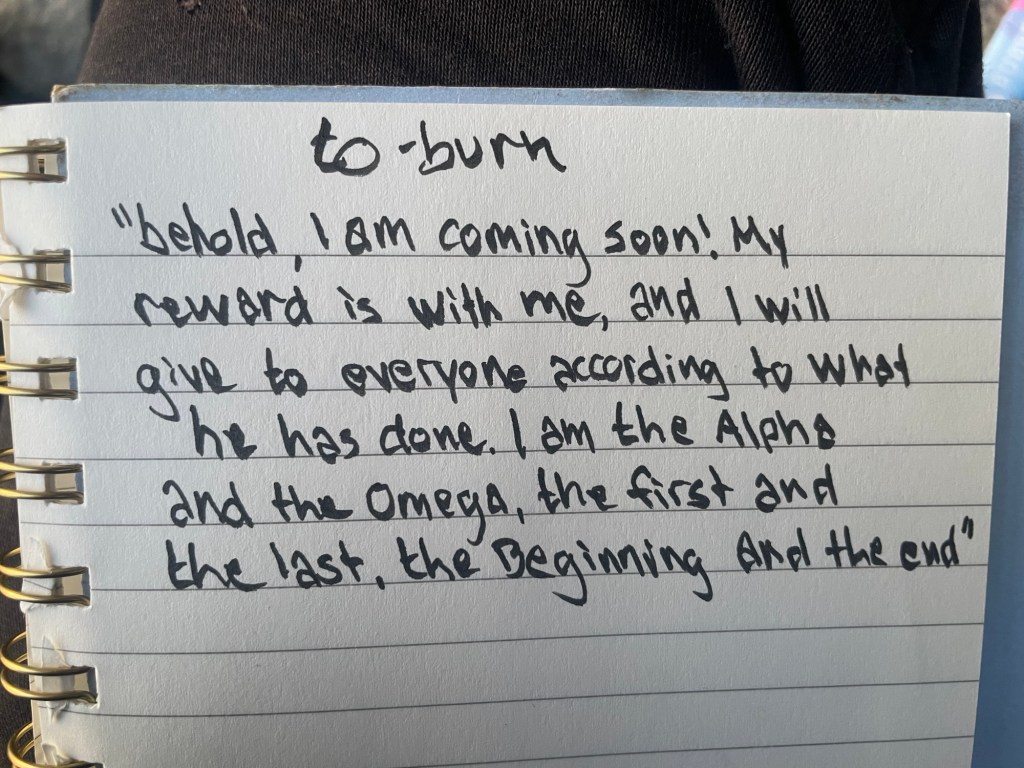 to-burn
"behold, I am coming soon! My
reward is with me, and I will
give to everyone according to what
he has done. I am the Alpha
and the Omega, the first and
the last, the Beginning And the end"